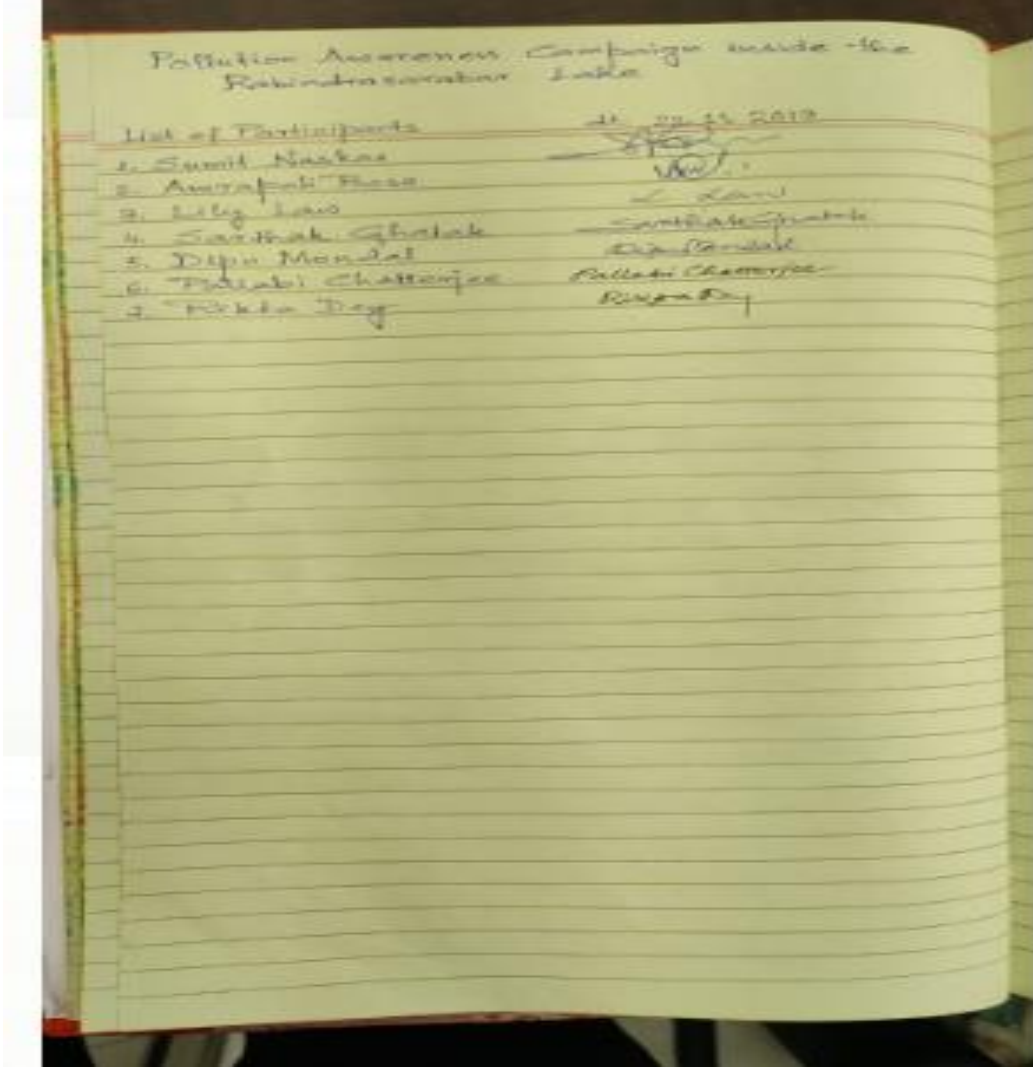 Pollution Awareness Campaign inside the
Rabindrasarabar Lake
List of Participants 2019
1. Sumit Naskar
2. Amrapali Bose
3. Lily Law L Law
4. Sarthak Ghatak Sarthak Ghatak
5. Dipu Mondal
6. Pallabi Chatterjee Pallabi Chatterjee
7. Rikta Dey